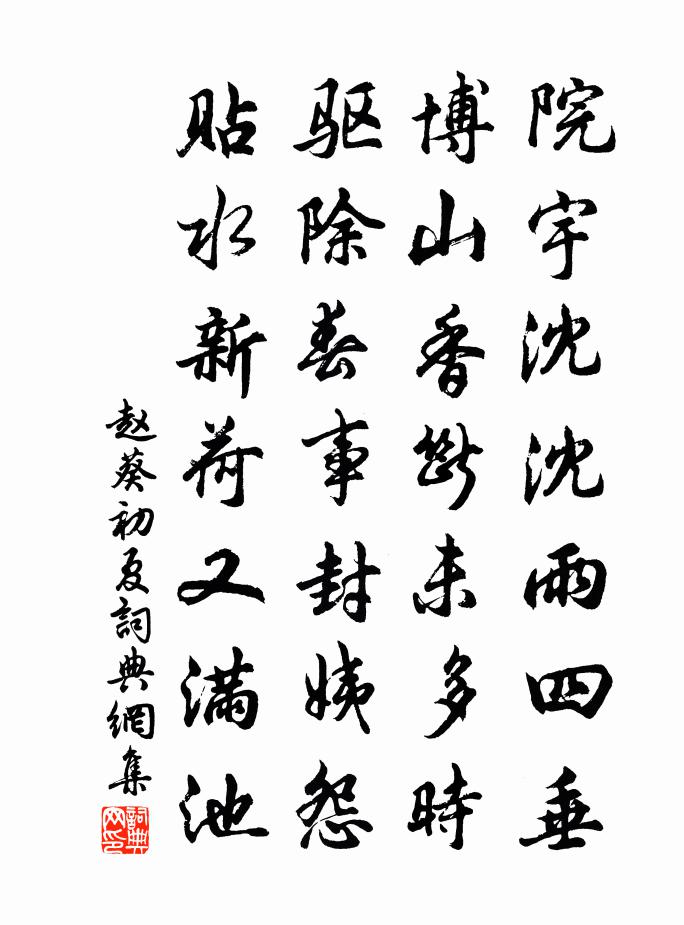 院宇沈沈雨四垂
博山香断未多時
驱除春事封姨怨
貼水新荷又满池
赵葵初夏詞典網集
詞典网印